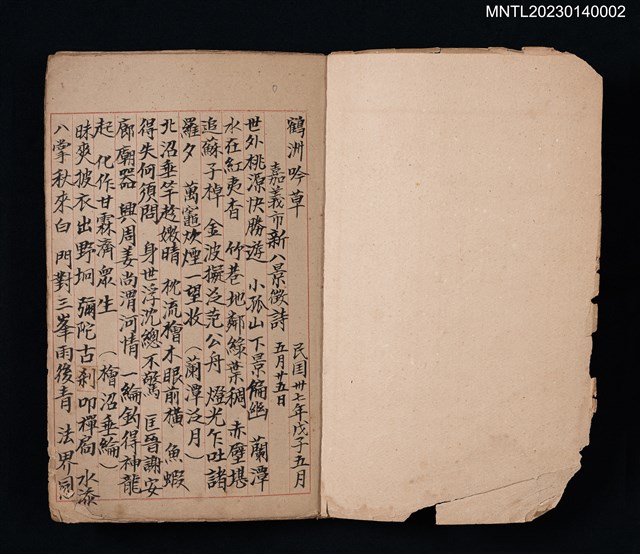 MNTL20230140002
鶴洲吟草　民国卅七年戊子五月
嘉義市新八景徵詩　五月廿五日
世外桃源快勝遊　小孤山下景偏幽　蘭潭
水在紅夷杳　竹巷地鄰綠葉稠　赤壁堪
追蘇子棹　金波擬泛范公舟　燈光乍吐諸
羅夕　萬竈炊煙一望收　（蘭潭泛月）
北沼垂竿趁嫩晴　枕流檜木眼前橫　魚蝦
得失何須問　身世浮沈總不驚　匡晉謝安
廊廟器　興周姜尚渭河情　一綸釣得神龍
起　化作甘霖濟眾生　（檜沼垂綸）
昧爽披衣出野坰　彌陀古剎叩禪扃　水添
八掌秋來白　門對三峯雨後青　法界圓